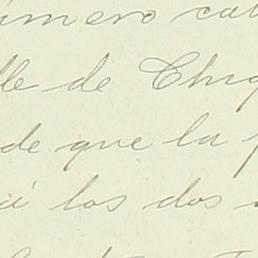 número ca
lle de Chi
de que la
a los dos